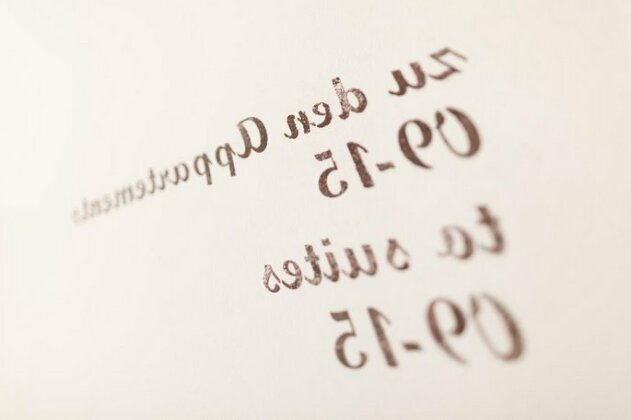 zu den Appartements
09-15
ta suites
09-15